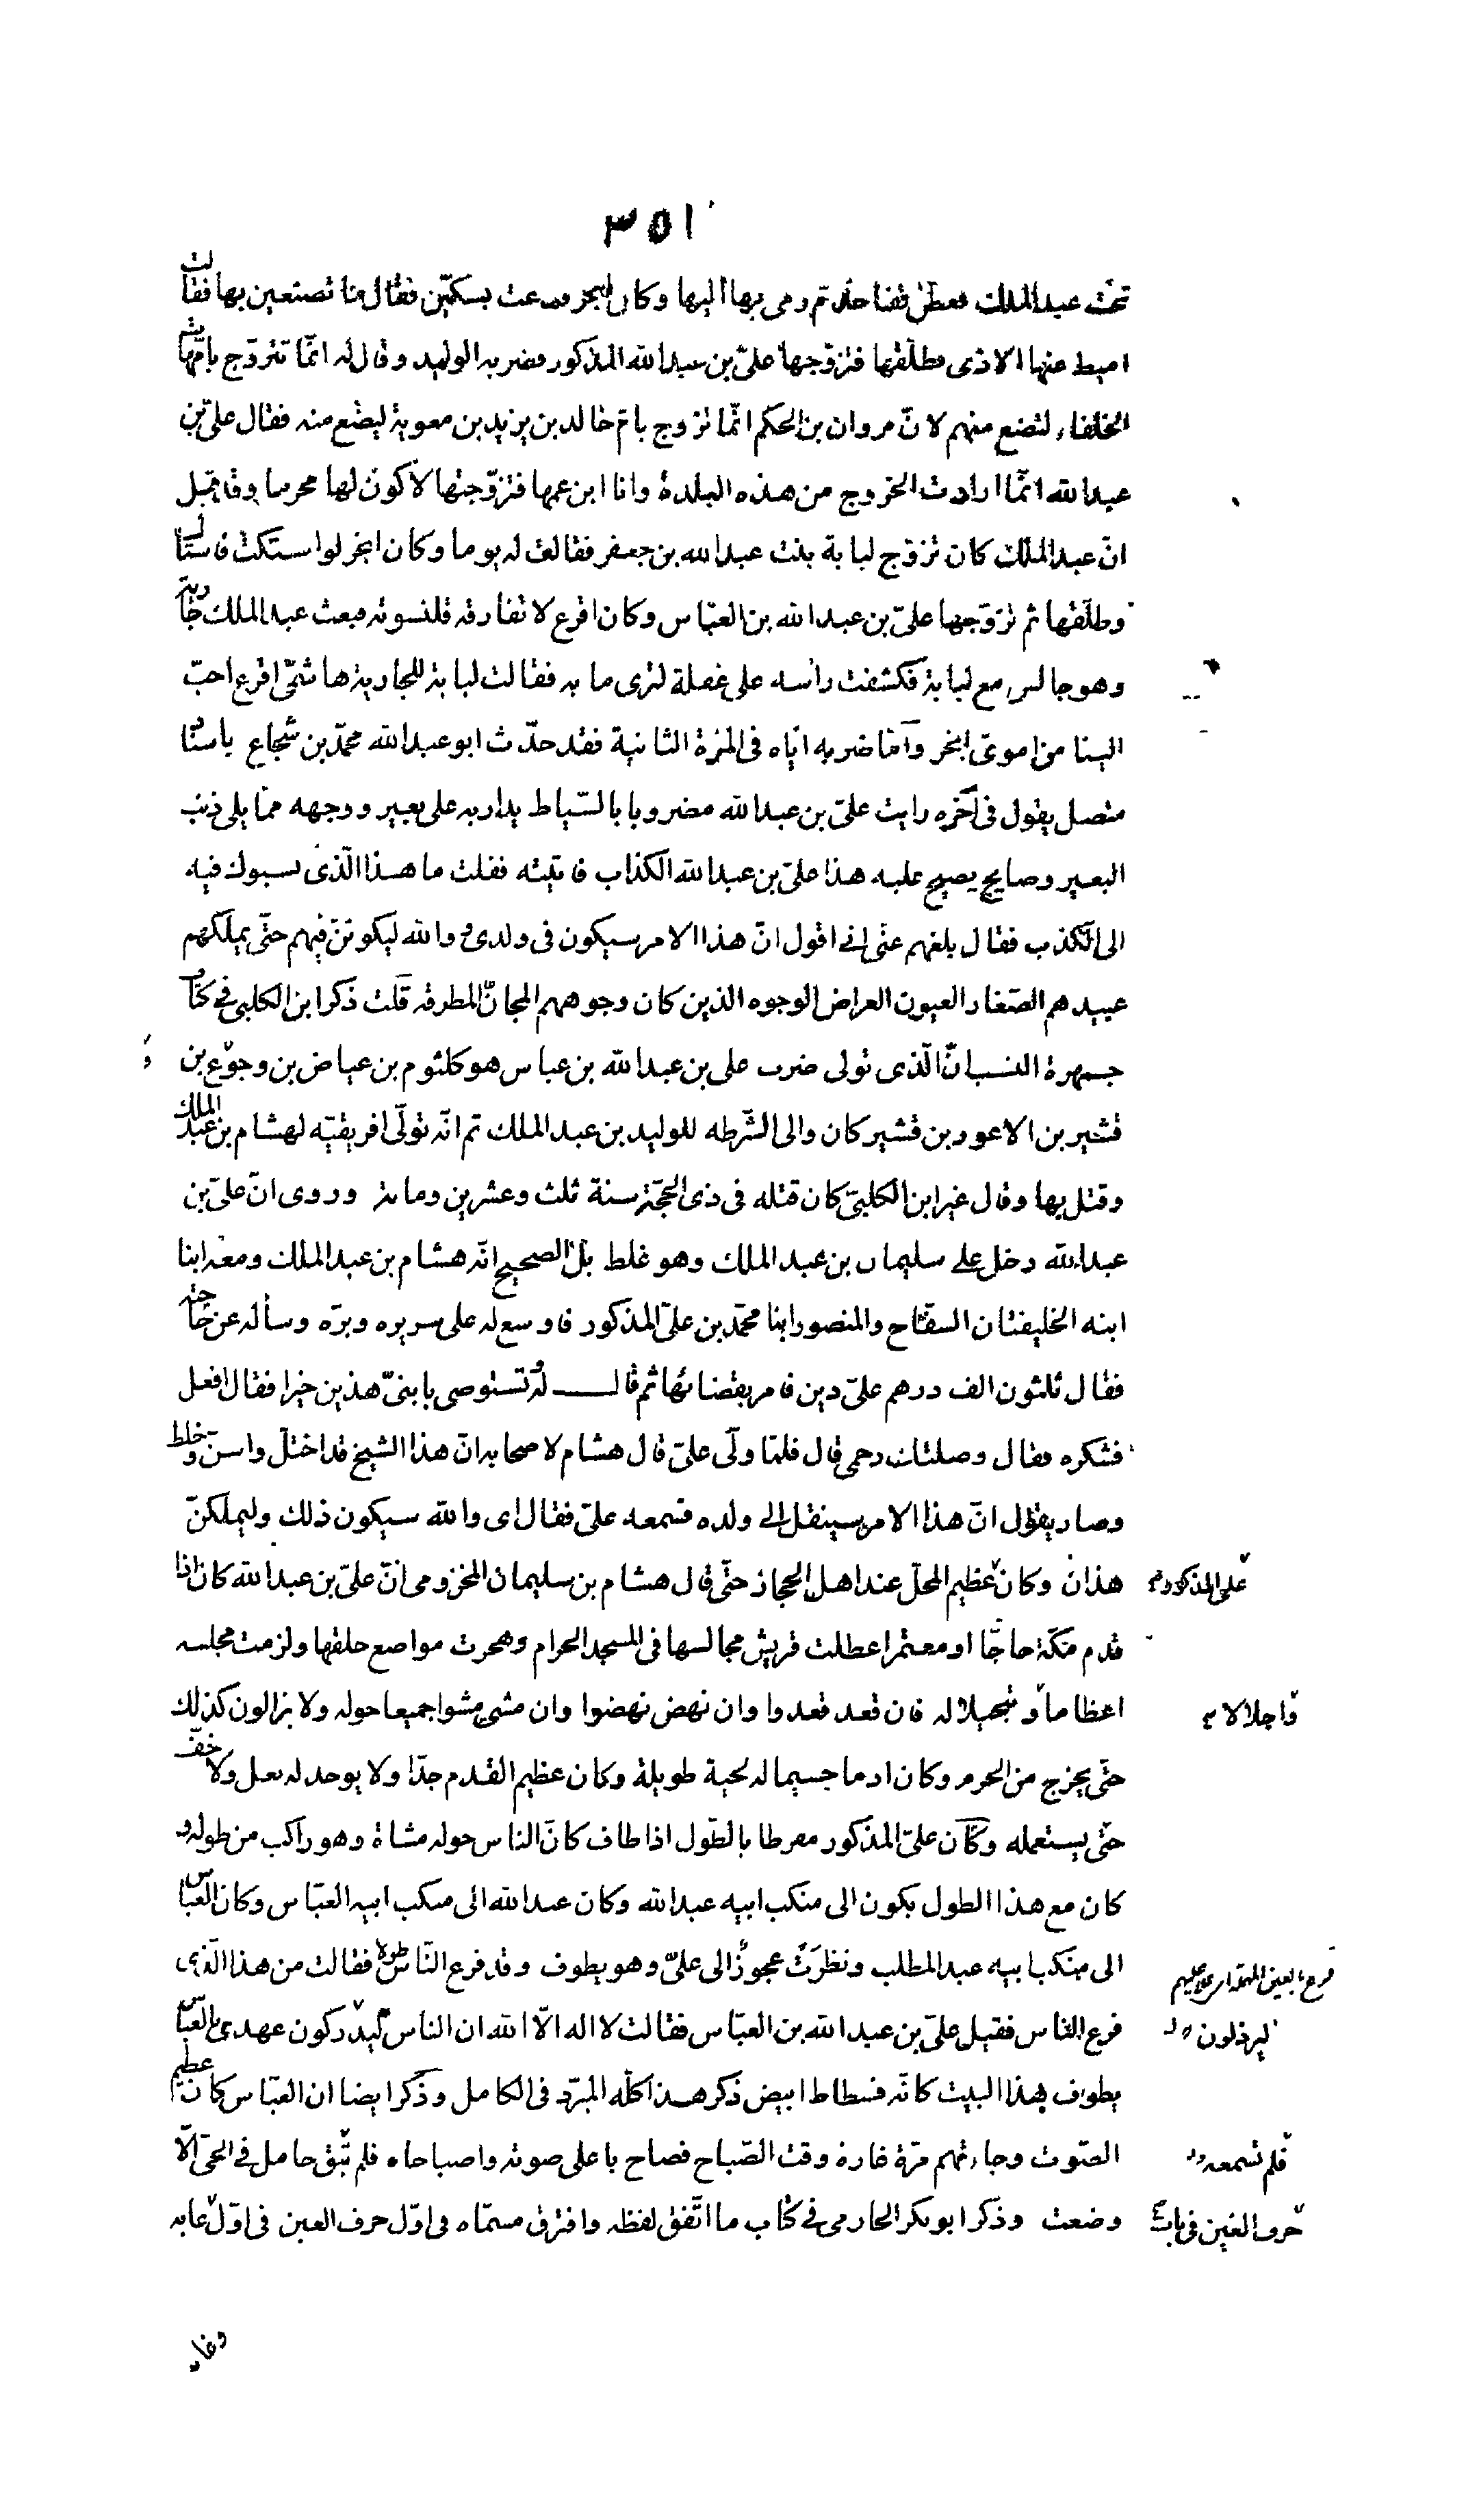 ٣٥١
تحت عبد الملك فعض تفاحة ثم رمى بها اليها وكان ابخر فدعت بسكين فقال ما تصنعين بها فقالت
اميط عنها الاذى فطلقها فتزوجها على بن عبد الله المذكور فضربه الوليد وقال له انما تتزوج بامهات
الخلفاء لتضع منهم لان مروان بن الحكم انما تزوج بام خالد بن يزيد بن معوية ليضع منه فقال على بن
عبد الله انما ارادت الخروج من هذه البلدة وانا ابن عمها فتزوجتها لاكون لها محرما وقد قيل
ان عبد الملك كان تزوج لبابة بنت عبد الله بن جعفر فقالت له يوما وكان ابخر لو استكت فاستاك
وطلقها ثم تزوجها على بن عبد الله بن العباس وكان اقرع لا تفارقه قلنسوته فبعث عبد الملك جارية
وهو جالس مع لبابة فكشفت رأسه على غفلة لترى ما به فقالت لبابة للجارية هاشمى اقرع احب
الينا من اموى ابخر واما ضربه اياه فى المرة الثانية فقد حدث ابو عبد الله محمد بن شجاع باسناد
متصل يقول فى آخره رايت على بن عبد الله مضروبا بالسياط يدار به على بعير ووجهه مما يلى ذنب
البعير وصايح يصيح عليه هذا على بن عبد الله الكذاب فاتيته فقلت ما هذا الذى نسبوك فيه
الى الكذب فقال بلغهم عنى انى اقول ان هذا الامر سيكون فى ولدى والله ليكونن فيهم حتى يملكهم
عبيدهم الصغار العيون العراض الوجوه الذين كان وجوههم المجان المطرقة قلت ذكر ابن الكلبى فى كتاب
جمهرة النسب ان الذى تولى ضرب على بن عبد الله بن عباس هو كلثوم بن عياض بن وجوح بن
قشير بن الاعور بن قشير كان والى الشرطه للوليد بن عبد الملك ثم انه تولى افريقيه لهشام بن عبد الملك
وقتل بها وقال غير ابن الكلبى كان قتله فى ذى الحجة سنة ثلث وعشرين ومائة وروى ان على بن
عبد الله دخل على سليمان بن عبد الملك وهو غلط بل الصحيح انه هشام بن عبد الملك ومعه ابنا
ابنه الخليفتان السفاح والمنصور ابنا محمد بن على المذكور فاوسع له على سريره وبره وسأله عن حاجته
فقال ثلثون الف درهم على دين فامر بقضائها ثم قال له وتستوصى بابنى هذين خيرا فقال افعل
فشكره فقال وصلتك رحمى قال فلما ولى على قال هشام لاصحابه ان هذا الشيخ قد اختل واسن وخلط
وصار يقول ان هذا الامر سينقل الى ولده فسمعه على فقال اى والله سيكون ذلك وليملكن
هذان وكان عظيم المحل عند اهل الحجاز حتى قال هشام بن سليمان المخزومى ان على بن عبد الله كان اذا
على المذكور
قدم مكة حاجا او معتمرا عطلت قريش مجالسها فى المسجد الحرام وهجرت مواضع حلقها ولزمت مجلسه
اعظاما وتبجيلا له فان قعد قعدوا وان نهض نهضوا وان مشى مشوا جميعا حوله ولا يزالون كذلك
واجلالا
حتى يخرج من الحرم وكان ادما جسيما له لحية طويلة وكان عظيم القدم جدا ولا يوجد له نعل ولا خف
حتى يستعمله وكان على المذكور مفرطا بالطول اذا طاف كان الناس حوله مشاة وهو راكب من طوله و
كان مع هذا الطول يكون الى منكب ابيه عبد الله وكان عبد الله الى منكب ابيه العباس وكان العباس
الى منكب ابيه عبد المطلب ونظرت عجوز الى على وهو يطوف وقد فرع الناس طولا فقالت من هذا الذى
فرع الناس فقيل على بن عبد الله بن العباس فقالت لا اله الا الله ان الناس ليبدركون عهدى بالعباس
ليرذلون
يطوف بهذا البيت كانه فسطاط ابيض ذكر هذا كله المبرد فى الكامل وذكر ايضا ان العباس كان عظيم
الصوت وجاءتهم مرة غارة وقت الصباح فصاح باعلى صوته واصباحاه فلم تبق حامل فى الحى الا
فلم تسمعه
وضعت وذكر ابو بكر الحازمى فى كتاب ما اتفق لفظه وافترق مسماه فى اول حرف العين فى اول غابه
حرف الغين فى باب
وغابه